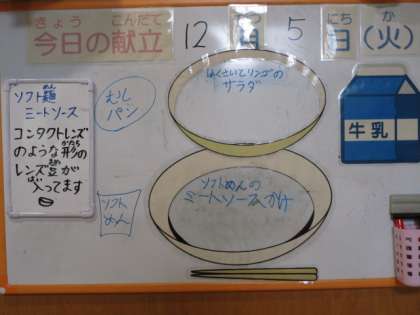 きょう こんだて がつ にち か
今日の献立 12 月 5 日(火)
ソフト麺
めん
ミートソース
コンタクトレンズ
のような形の
かたち
レンズ豆が
まめ
入ってます
むし
パン
はくさいとリンゴの
サラダ
牛乳
ソフト
めん
ソフトめんの
ミートソースかけ